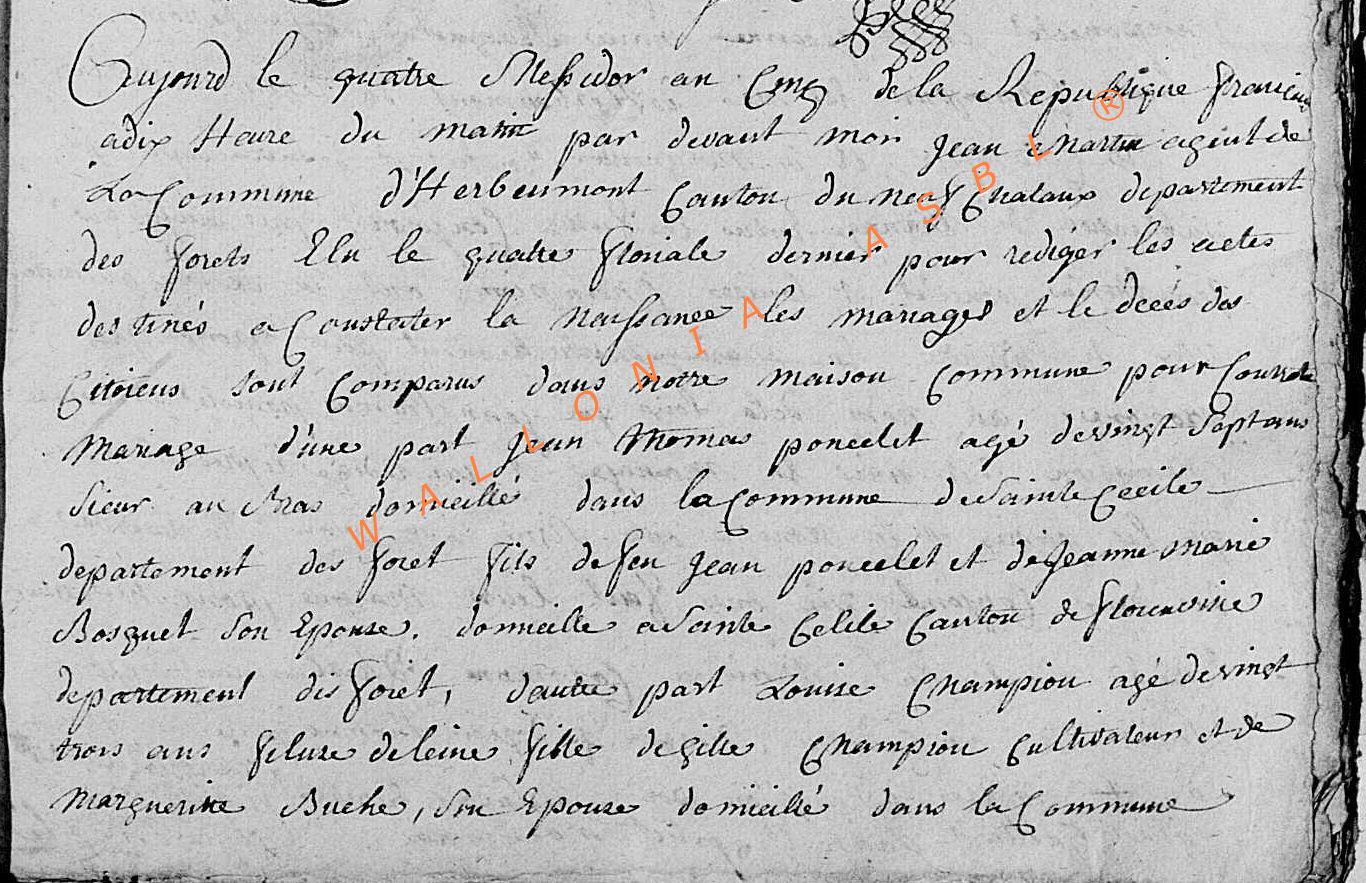 Aujourd le quatre Messidor an Cinq de la Republique
adix Heure du matin par devant moi Jean Martin agent de
La Commune d'Herbeumont Canton du neuf Chataux departement
des forets Elu le quatre floriale dernier pour rediger les actes
destinés a Constater la Naissance les mariages et le decés des
Citoiens sont Comparus dans notre maison Commune pour
Mariage d'une part Jean Thomas poncelet agé de vingt Sept ans
sieur au Bras domicillié dans la Commune de Sainte Cecile
departement des foret fils de feu Jean poncelet et de Jeanne Marie
Bosquet Son Epouse. domicille a Sainte Celile Canton de florenville
departement des foret, dautre part Louise Champion agé de vingt
trois ans fileuse de leine fille de gille Champion Cultivateur et de
Marguerite Buche, Son Epouse domicillié dans la Commune
WALLONIA ASBL ®